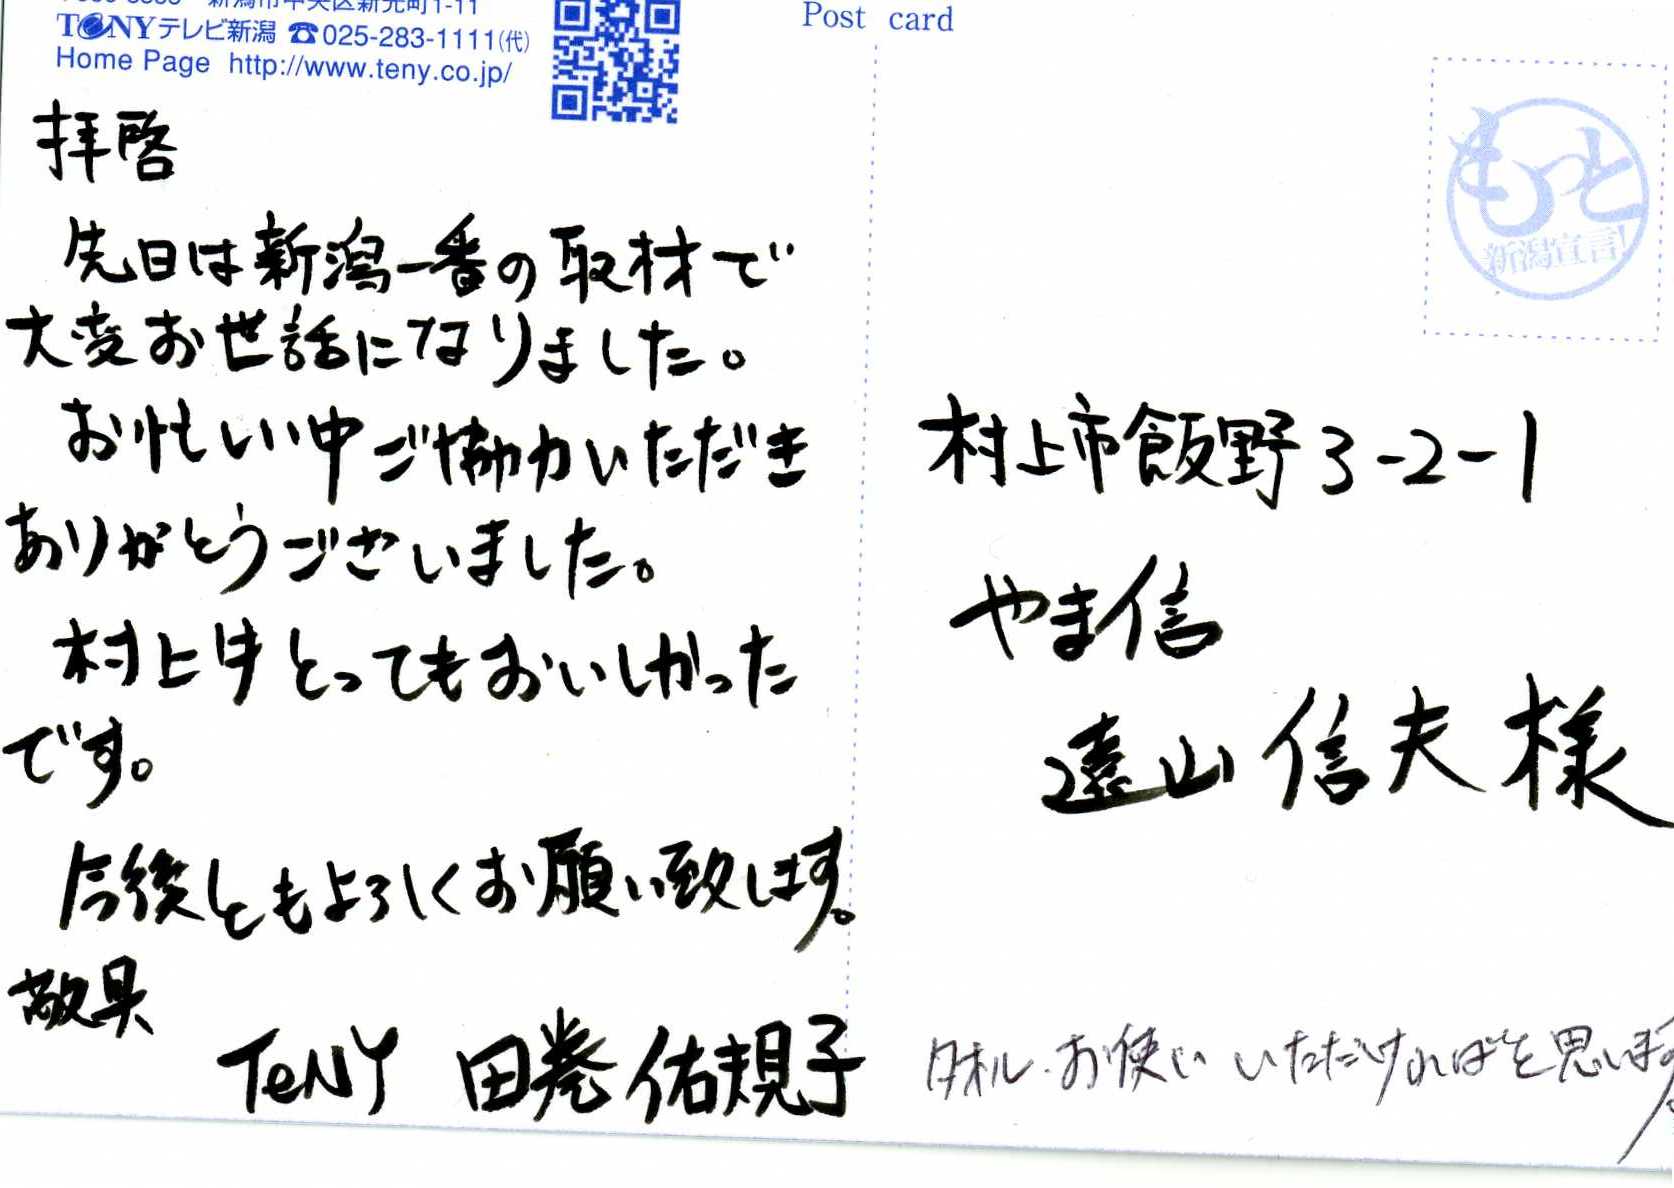 新潟市中央区新光町1-11
TeNYテレビ新潟 ☎025-283-1111(代)
Home Page http://www.teny.co.jp/
Post card
もっと
新潟宣言!
拝啓
先日は新潟一番の取材で
大変お世話になりました。
お忙しい中ご協力いただき
ありがとうございました。
村上牛とってもおいしかった
です。
今後ともよろしくお願い致します。
敬具
TeNY 田巻佑規子
村上市飯野3-2-1
やま信
遠山信夫様
タオル、お使いいただければと思います。